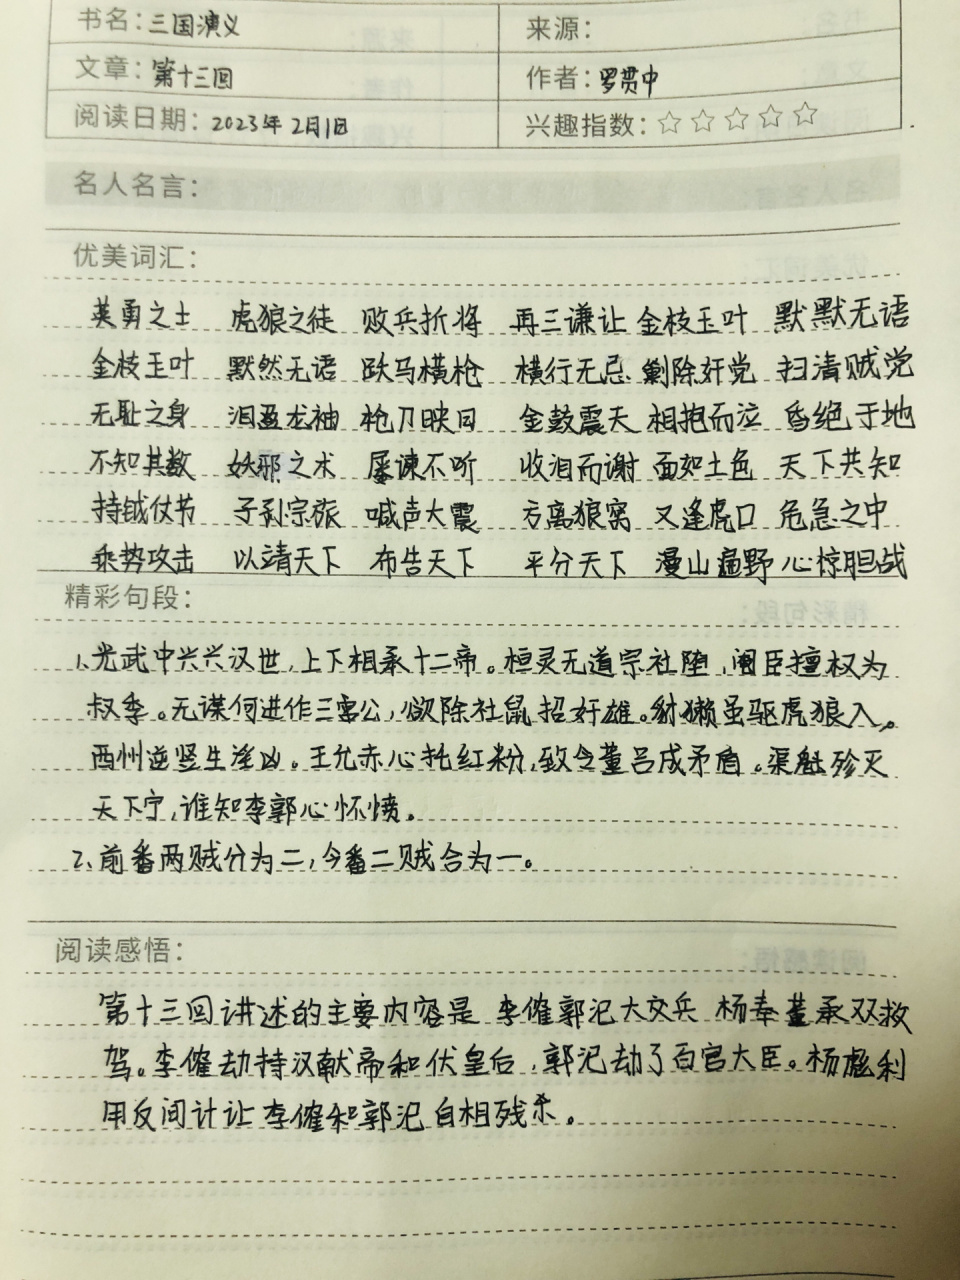 书名：三国演义 来源：
文章：第十三回 作者：罗贯中
阅读日期：2023年2月1日 兴趣指数：☆☆☆☆☆
名人名言：
优美词汇：
英勇之士 虎狼之徒 败兵折将 再三谦让 金枝玉叶 默默无语
金枝玉叶 默然无语 跃马横枪 横行无忌 剿除奸党 扫清贼党
无耻之身 泪盈龙袖 枪刀映日 金鼓震天 相抱而泣 昏绝于地
不知其数 妖邪之术 屡谏不听 收泪而谢 面如土色 天下共知
持钺仗节 子孙宗族 喊声大震 方离狼窝 又逢虎口 危急之中
乘势攻击 以靖天下 布告天下 平分天下 漫山遍野 心惊胆战
精彩句段：
1、光武中兴兴汉世，上下相承十二帝。桓灵无道宗社堕，阉臣擅权为
叔季。无谋何进作三公，欲除社鼠招奸雄。豺獭虽驱虎狼入，
西州逆竖生淫凶。王允赤心托红粉，致令董吕成矛盾。渠魁殄灭
天下宁，谁知李郭心怀愤。
2、前番两贼分为二，今番二贼合为一。
阅读感悟：
第十三回讲述的主要内容是 李傕郭汜大交兵 杨奉董承双救
驾。李傕劫持汉献帝和伏皇后，郭汜劫了百官大臣。杨彪利
用反间计让李傕和郭汜自相残杀。